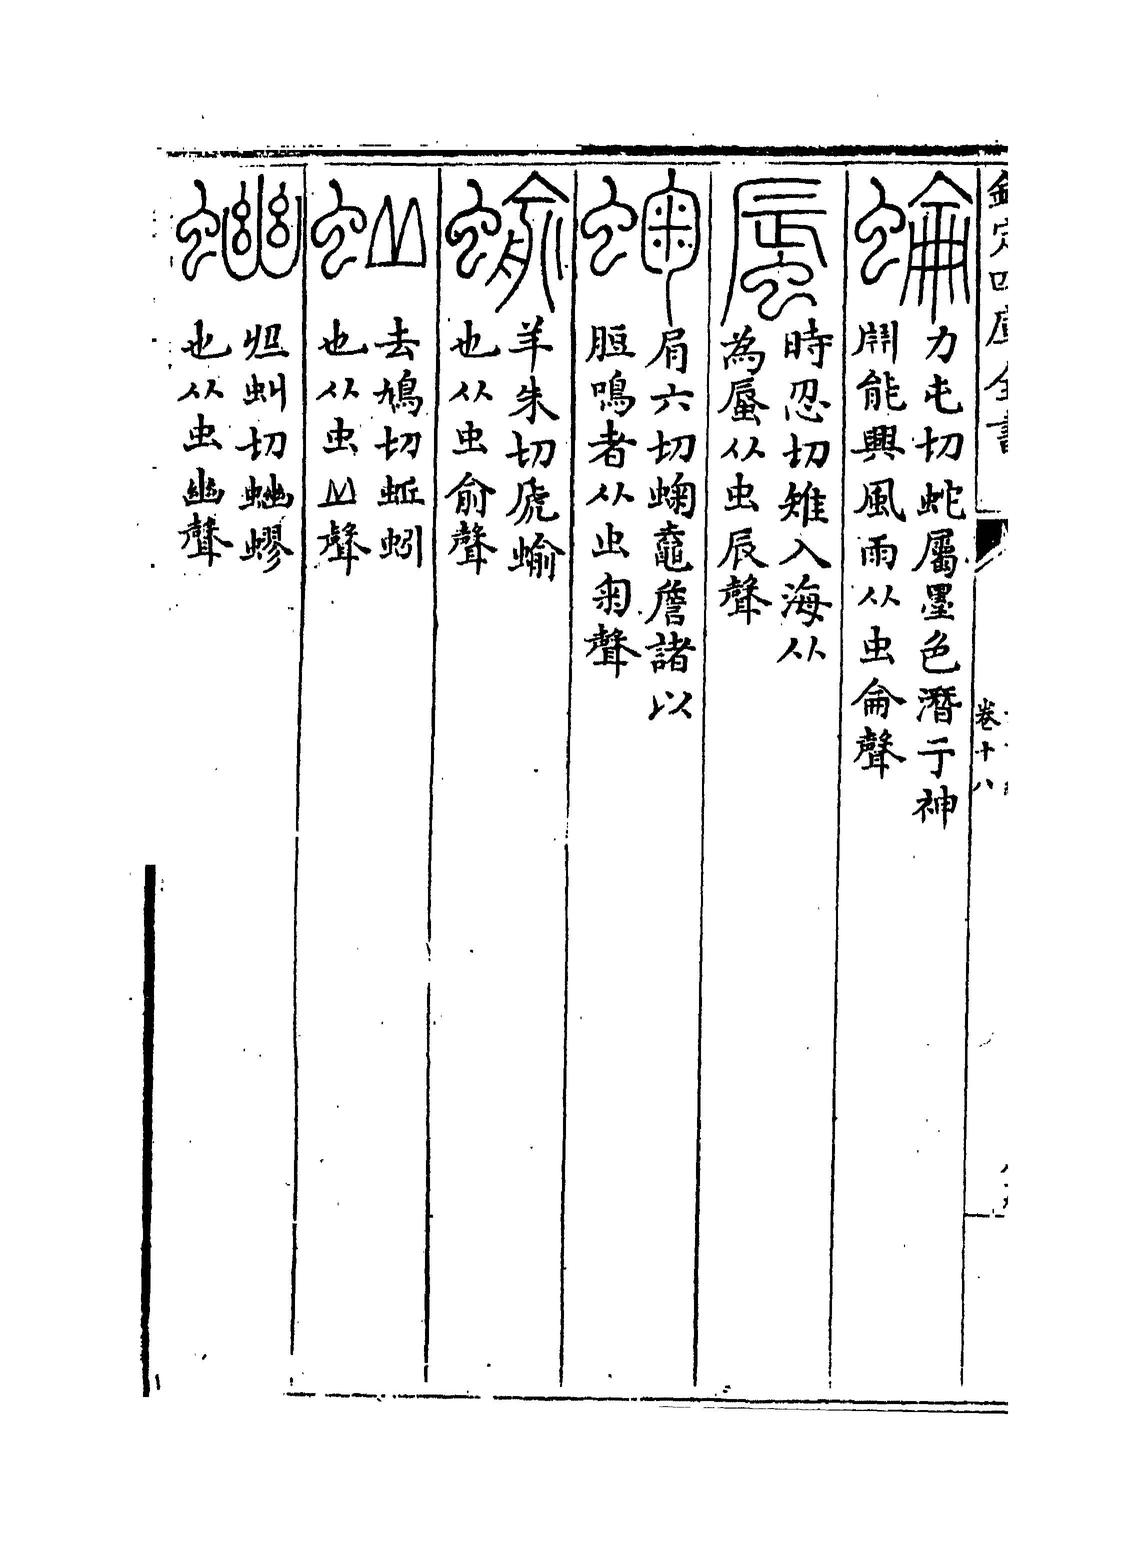 欽定四庫全書
卷十八
蜦
力屯切蛇屬墨色潛于神
𣶒能興風雨从虫侖聲
蜃
時忍切雉入海从
為蜃从虫辰聲
䗇
居六切䗇鼀詹諸以
脰鳴者从虫匊聲
蝓
羊朱切虒蝓
也从虫俞聲
蚯
去鳩切蚯蚓
也从虫丘聲
虯切蟉
也从虫幽聲